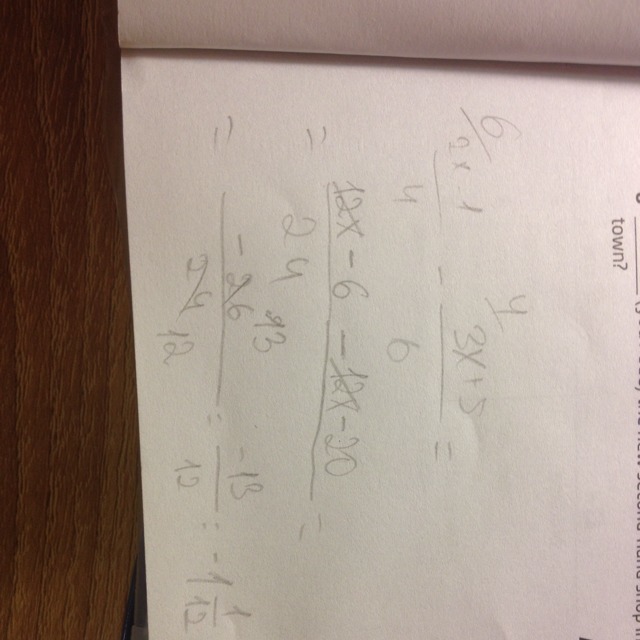 town?
6/ 2x-1 / 4 - 4/ 3x+5 / 6 =
= 12x - 6 - 12x - 20 / 24 =
= - 26 13 / 24 12 = -13 / 12 = -1 1/12